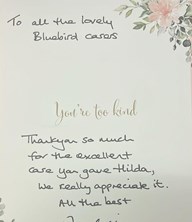 To all the lovely
Bluebird carers
You're too kind
Thankyou so much
for the excellent
care you gave Hilda,
We really appreciate it.
All the best